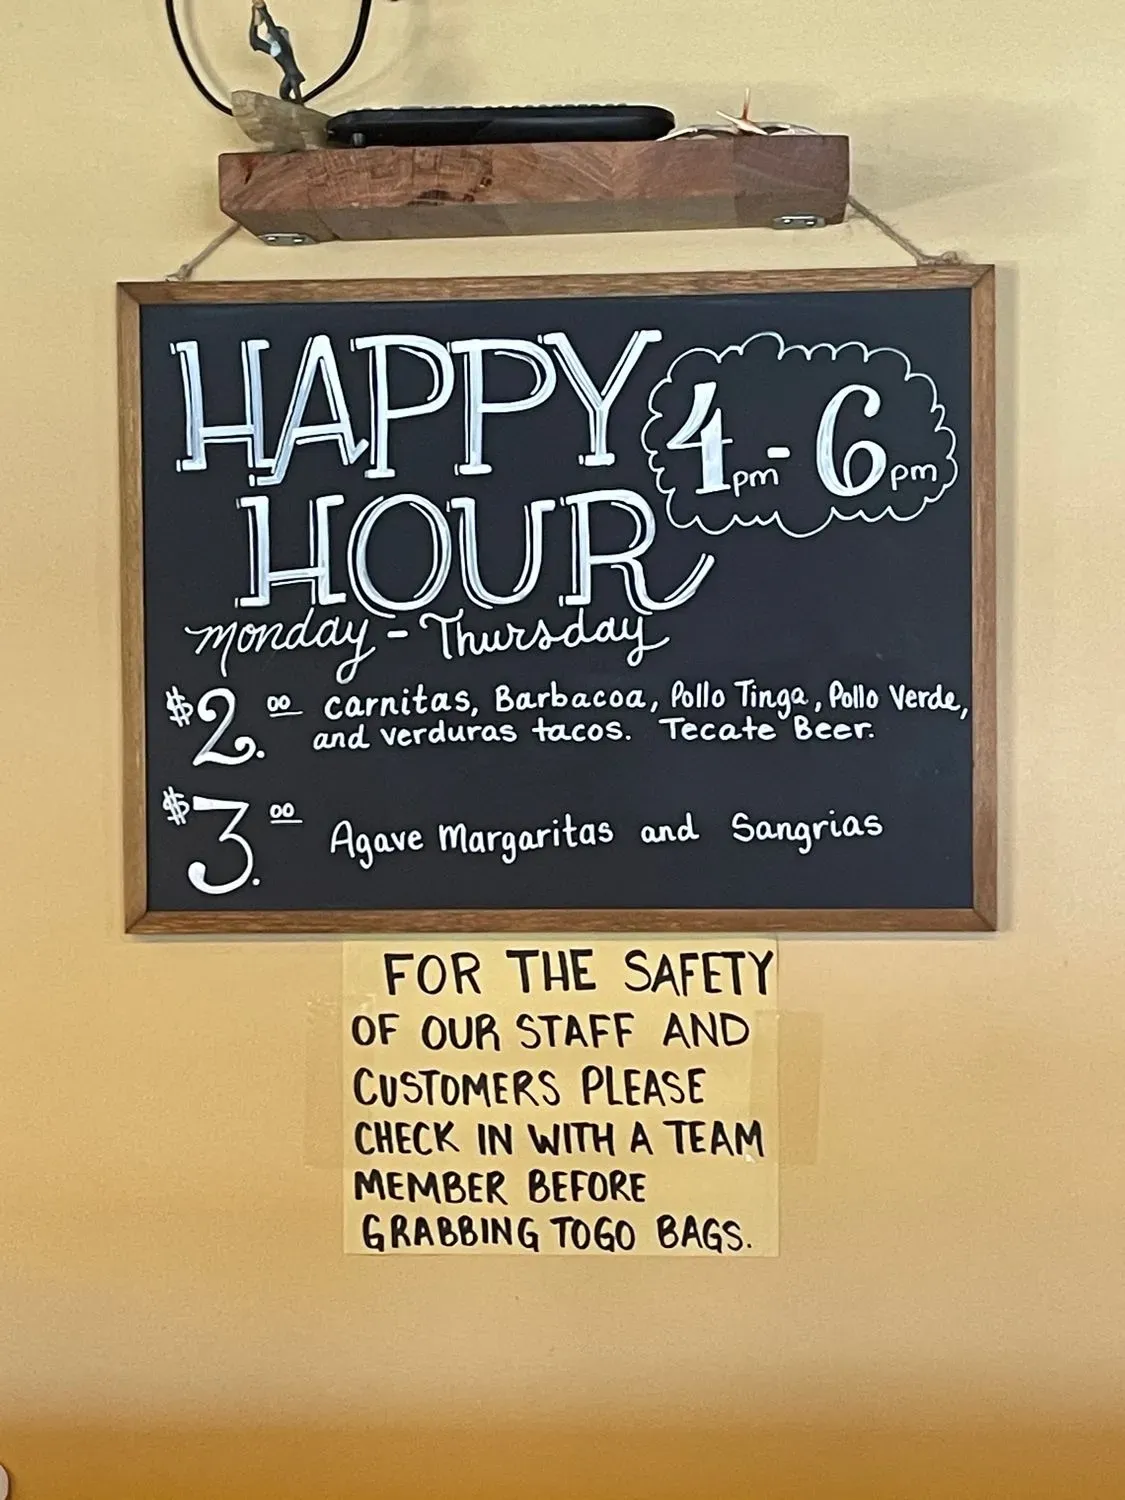 HAPPY
4pm - 6pm
HOUR
Monday - Thursday
$2.00 carnitas, Barbacoa, Pollo Tinga, Pollo Verde,
and verduras tacos. Tecate Beer.
$3.00 Agave Margaritas and Sangrias
FOR THE SAFETY
OF OUR STAFF AND
CUSTOMERS PLEASE
CHECK IN WITH A TEAM
MEMBER BEFORE
GRABBING TOGO BAGS.